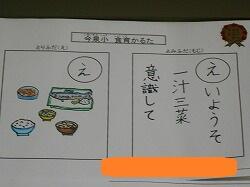 今泉小 食育かるた
とりふだ(え)
よみふだ(もじ)
え
えいようそ
一汁三菜
意識して